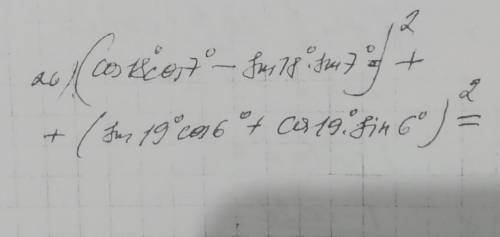 26) (cos18°cos7° - sin18°·sin7°)² +
+ (sin19°cos6° + cos19°·sin6°)² =